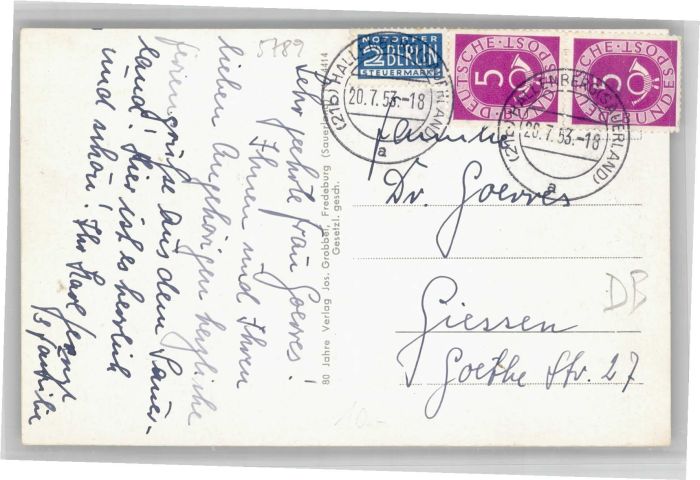 5789
Sehr geehrte Frau Goerres!
Ihnen und Ihren
lieben Angehörigen herzliche
Feriengrüße aus dem Sauer-
land! Hier ist es herrlich
und schön! Ihr Karl
NOTOPFER
2 BERLIN
STEUERMARKE
DEUTSCHE BUNDESPOST
5
DEUTSCHE BUNDESPOST
5
(21b) HALLENBERG (SAUERLAND)
20.7.53.-18
a
(21b) HALLENBERG (SAUERLAND)
20.7.53.-18
a
80 Jahre Verlag Jos. Grobbel, Fredeburg (Sauerland)
Gesetzl. gesch.
Familie
Dr. Goerres
Giessen
Goethe Str. 27
DB
10.-